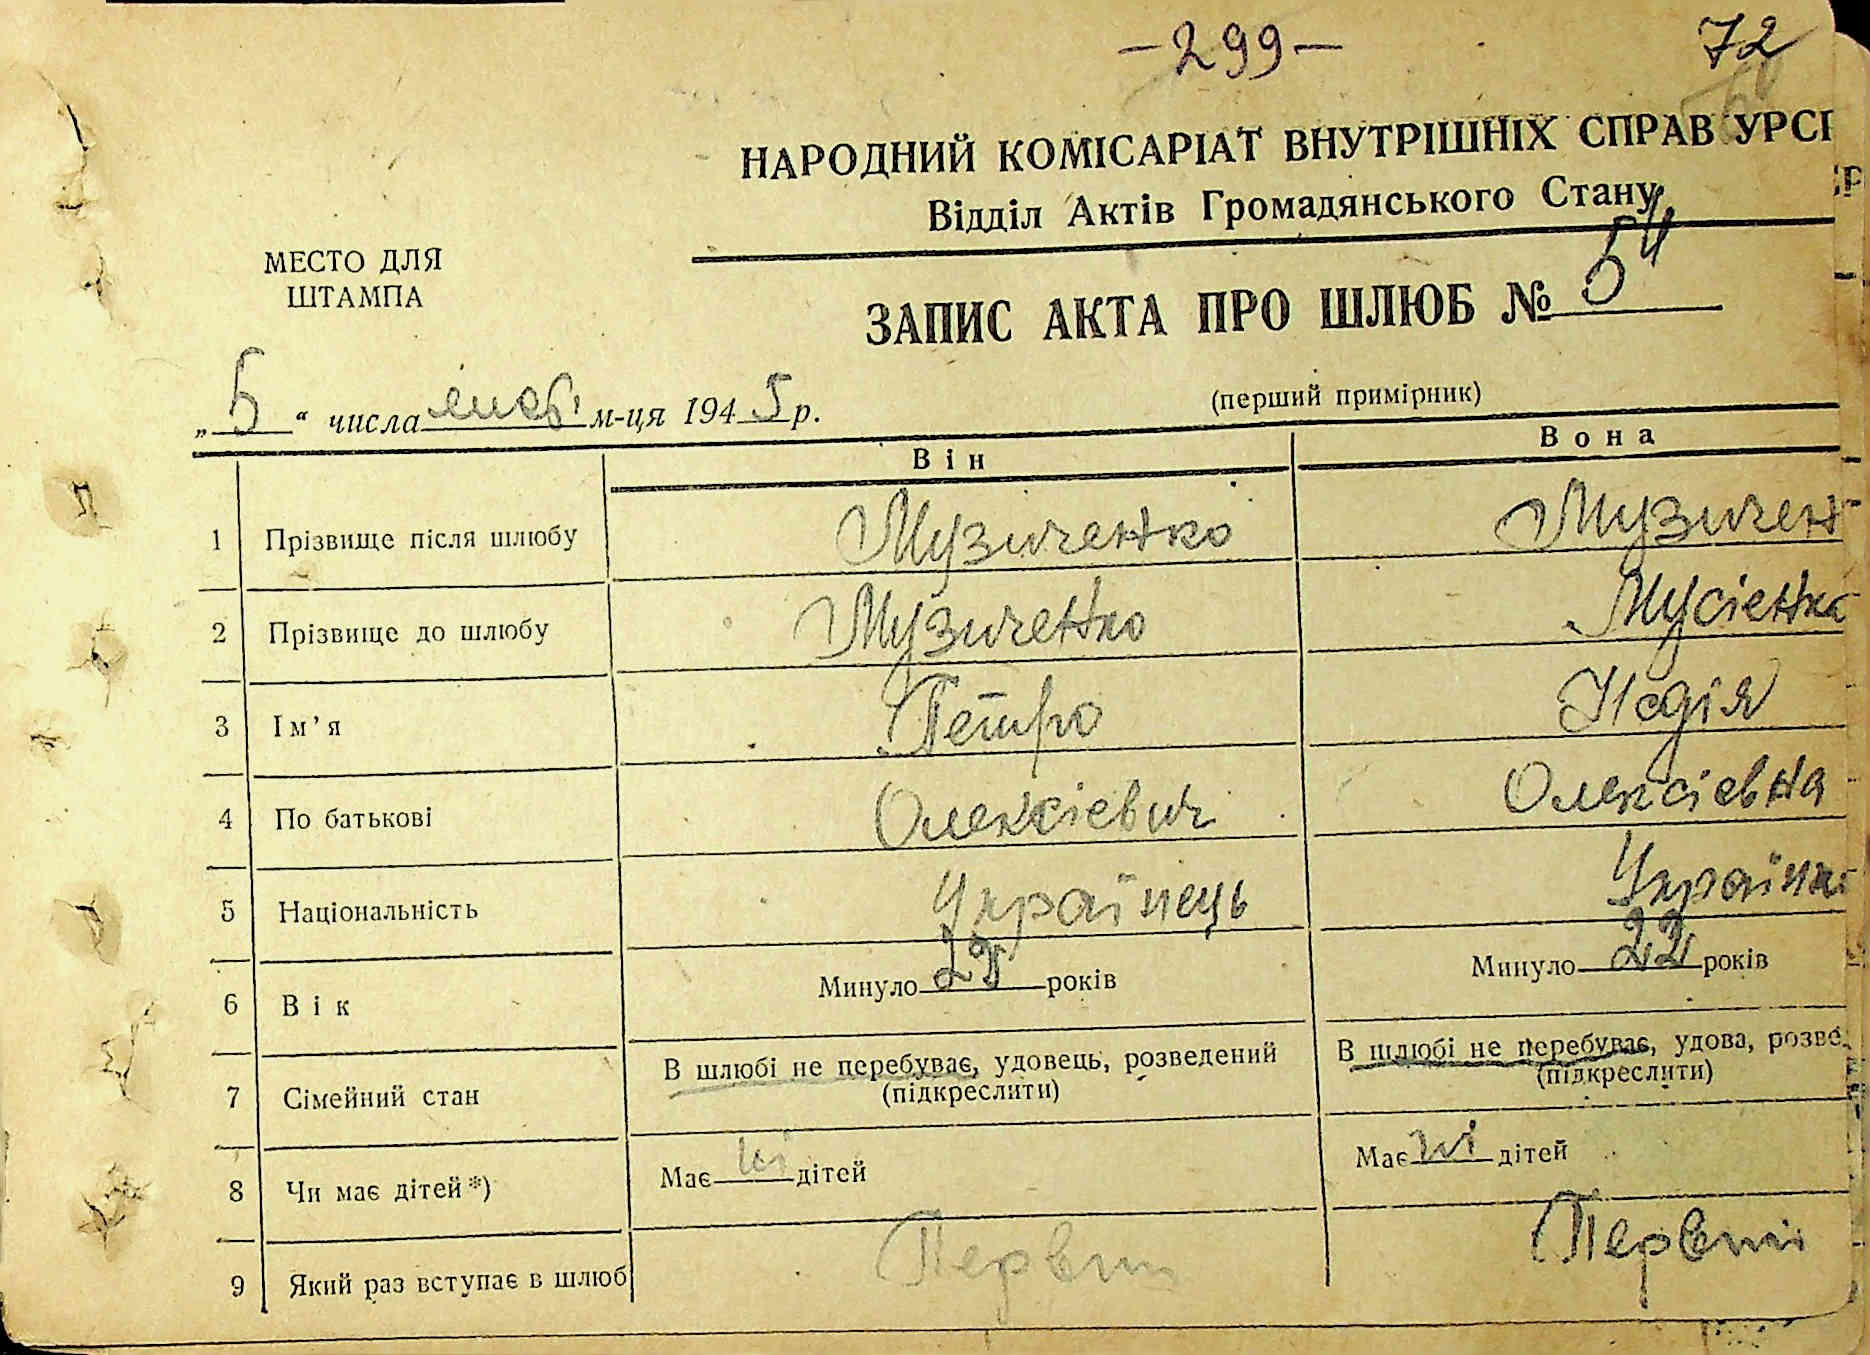 -299-
72
НАРОДНИЙ КОМІСАРІАТ ВНУТРІШНІХ СПРАВ УРСР
Відділ Актів Громадянського Стану
МЕСТО ДЛЯ
ШТАМПА
ЗАПИС АКТА ПРО ШЛЮБ № 54
(перший примірник)
„5“ числа м-ця 1945 р.
Він Вона
1 Прізвище після шлюбу Музиченко Музичен
2 Прізвище до шлюбу Музиченко Мусієнко
3 Ім’я Петро Надія
4 По батькові Олексієвич Олексієвна
5 Національність Українець Українка
6 Вік Минуло років Минуло 22 років
7 Сімейний стан В шлюбі не перебуває, удовець, розведений В шлюбі не перебуває, удова, розве
(підкреслити) (підкреслити)
8 Чи має дітей*) Має ні дітей Має ні дітей
9 Який раз вступає в шлюб Первий Первий